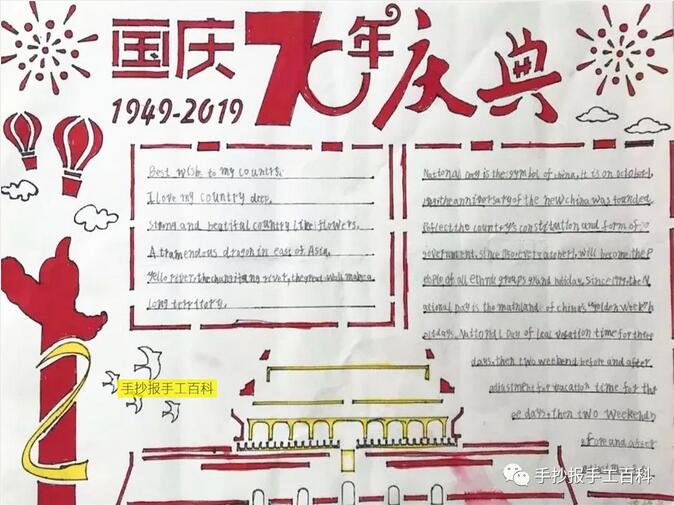 国庆70年庆典
1949-2019
Best wishe to my country:
I love my country deep,
strong and beatiful country like flowers,
A tramendous dragon in east of Asia,
Yello river, the changjiang river, the great wall make a
long territory.
National day is the symbol of china, it is on octobor1,
the anniversary of the new china was founded,
reflect the country's constitution and form of
government, since 1950 every october1, will become the P
eople of all ethnic groups grand holiday, Since 1999, the N
ational Day is the mainland of china's "golden week" h
olidays, National Day of legal vocation time for three
days, then two weekend before and after
adjustment for vacation time for th
ee days, then two weekend b
efore and after
手抄报手工百科
手抄报手工百科